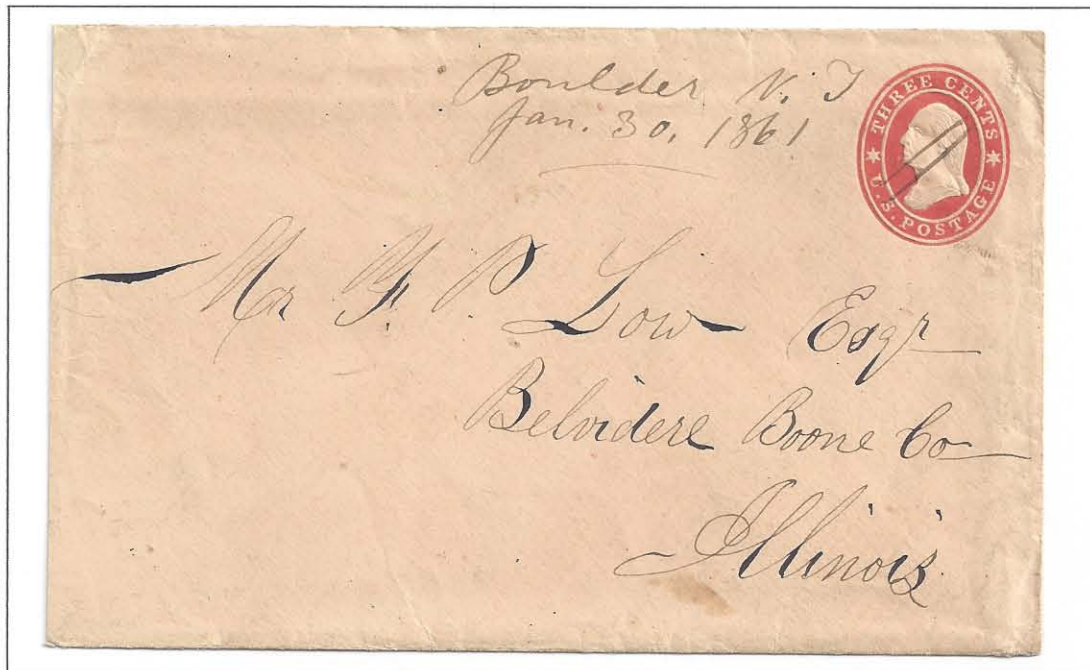 Boulder N. T
Jan. 30, 1861
THREE CENTS
U.S. POSTAGE
Mr F. P. Low Esqr
Belvidere Boone Co
Illinois